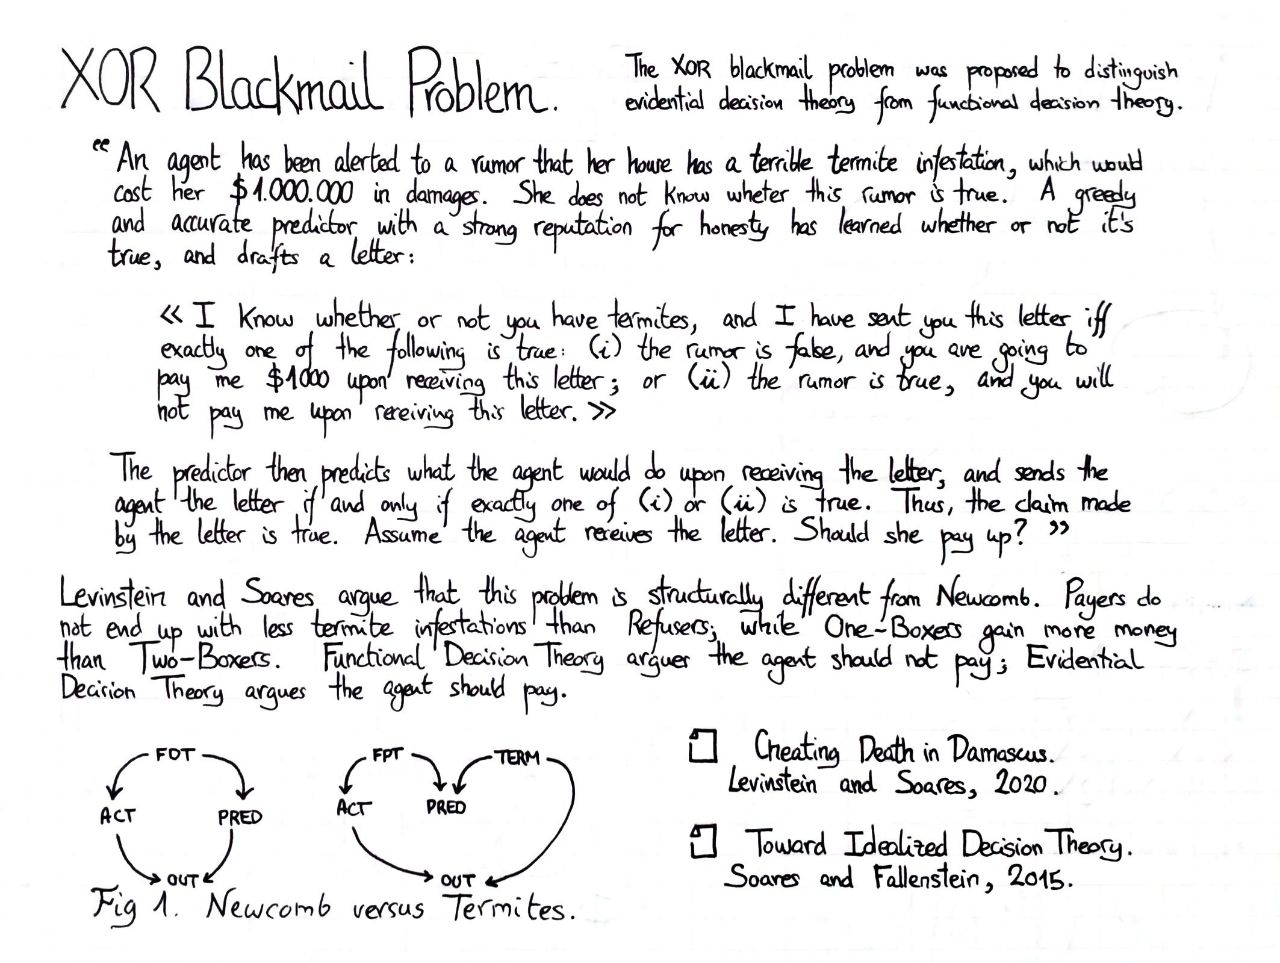 XOR Blackmail Problem.
The XOR blackmail problem was proposed to distinguish
evidential decision theory from functional decision theory.
“An agent has been alerted to a rumor that her house has a terrible termite infestation, which would
cost her $1.000.000 in damages. She does not know wheter this rumor is true. A greedy
and accurate predictor with a strong reputation for honesty has learned whether or not it's
true, and drafts a letter:
« I know whether or not you have termites, and I have sent you this letter iff
exactly one of the following is true: (i) the rumor is false, and you are going to
pay me $1000 upon receiving this letter; or (ii) the rumor is true, and you will
not pay me upon receiving this letter. »
The predictor then predicts what the agent would do upon receiving the letter, and sends the
agent the letter if and only if exactly one of (i) or (ii) is true. Thus, the claim made
by the letter is true. Assume the agent receives the letter. Should she pay up? ”
Levinstein and Soares argue that this problem is structurally different from Newcomb. Payers do
not end up with less termite infestations than Refusers; while One-Boxers gain more money
than Two-Boxers. Functional Decision Theory argues the agent should not pay; Evidential
Decision Theory argues the agent should pay.
FDT
ACT PRED
OUT
FDT TERM
ACT PRED
OUT
Fig 1. Newcomb versus Termites.
Cheating Death in Damascus.
Levinstein and Soares, 2020.
Toward Idealized Decision Theory.
Soares and Fallenstein, 2015.